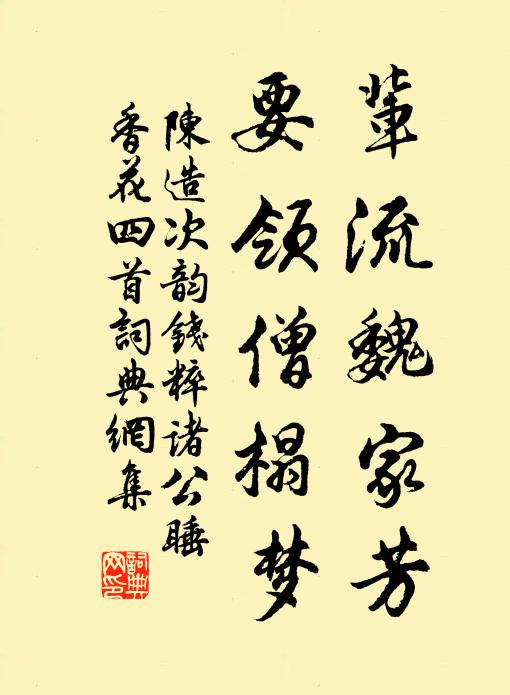 輩流魏家芳
要领僧榻梦
陳造次韵錢粹诸公睡
香花四首詞典網集
詞典网印